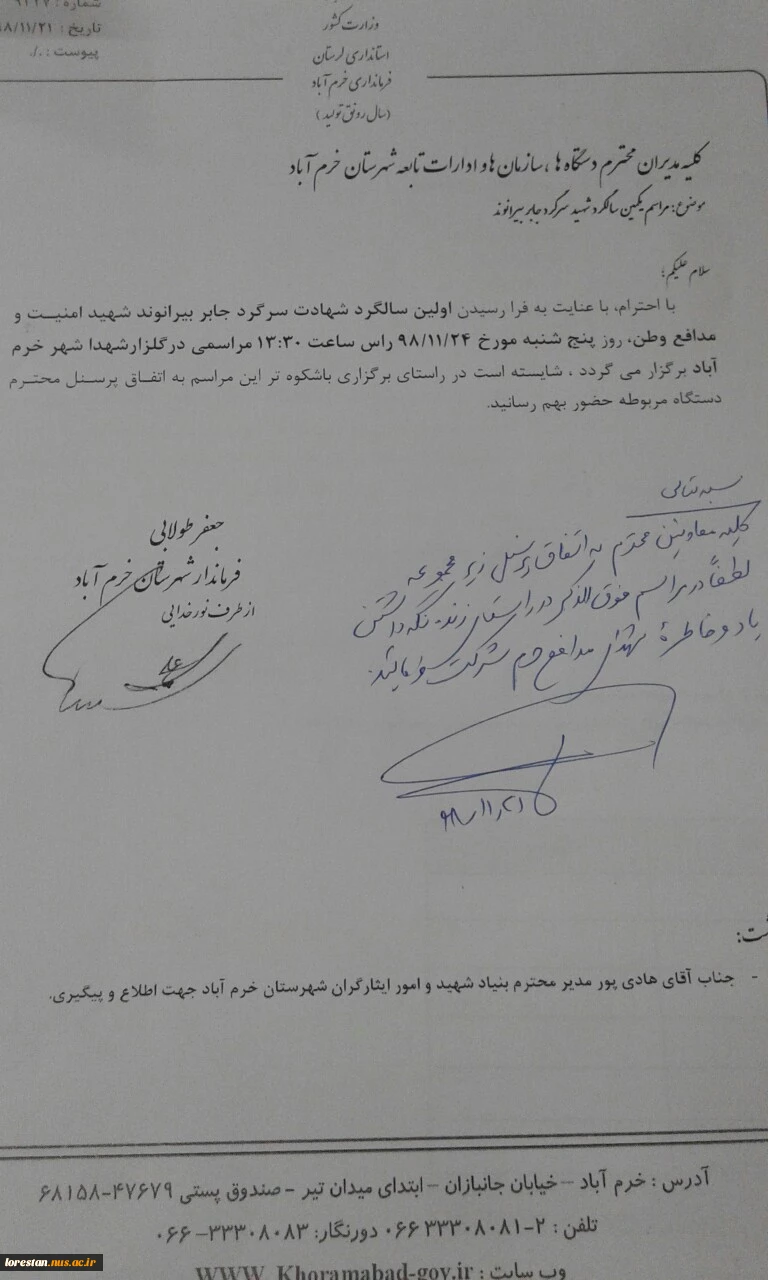 شماره :
تاریخ : ۹۸/۱۱/۲۱
پیوست : ./.
وزارت کشور
استانداری لرستان
فرمانداری خرم آباد
(سال رونق تولید)
کلیه مدیران محترم دستگاه ها ، سازمان ها و ادارات تابعه شهرستان خرم آباد
موضوع: مراسم یکمین سالگرد شهید سرگرد جابر بیرانوند
سلام علیکم؛
با احترام، با عنایت به فرا رسیدن اولین سالگرد شهادت سرگرد جابر بیرانوند شهید امنیت و
مدافع وطن، روز پنج شنبه مورخ ۹۸/۱۱/۲۴ راس ساعت ۱۳:۳۰ مراسمی در گلزار شهدا شهر خرم
آباد برگزار می گردد ، شایسته است در راستای برگزاری باشکوه تر این مراسم به اتفاق پرسنل محترم
دستگاه مربوطه حضور بهم رسانید.
جعفر طولابی
فرماندار شهرستان خرم آباد
از طرف نورخدایی
بسمه تعالی
کلیه معاونین محترم به اتفاق پرسنل زیر مجموعه
لطفاً در مراسم فوق الذکر در راستای زنده نگه داشتن
یاد و خاطرهٔ شهدای مدافع حرم شرکت فرمایند.
۹۸/۱۱/۲۱
شت:
- جناب آقای هادی پور مدیر محترم بنیاد شهید و امور ایثارگران شهرستان خرم آباد جهت اطلاع و پیگیری.
آدرس : خرم آباد – خیابان جانبازان – ابتدای میدان تیر – صندوق پستی ۴۷۶۷۹-۶۸۱۵۸
تلفن : ۲-۳۳۳۰۸۰۸۱ ۰۶۶ دورنگار: ۳۳۳۰۸۰۸۳-۰۶۶
وب سایت : WWW. Khoramabad-gov.ir
lorestan.nus.ac.ir